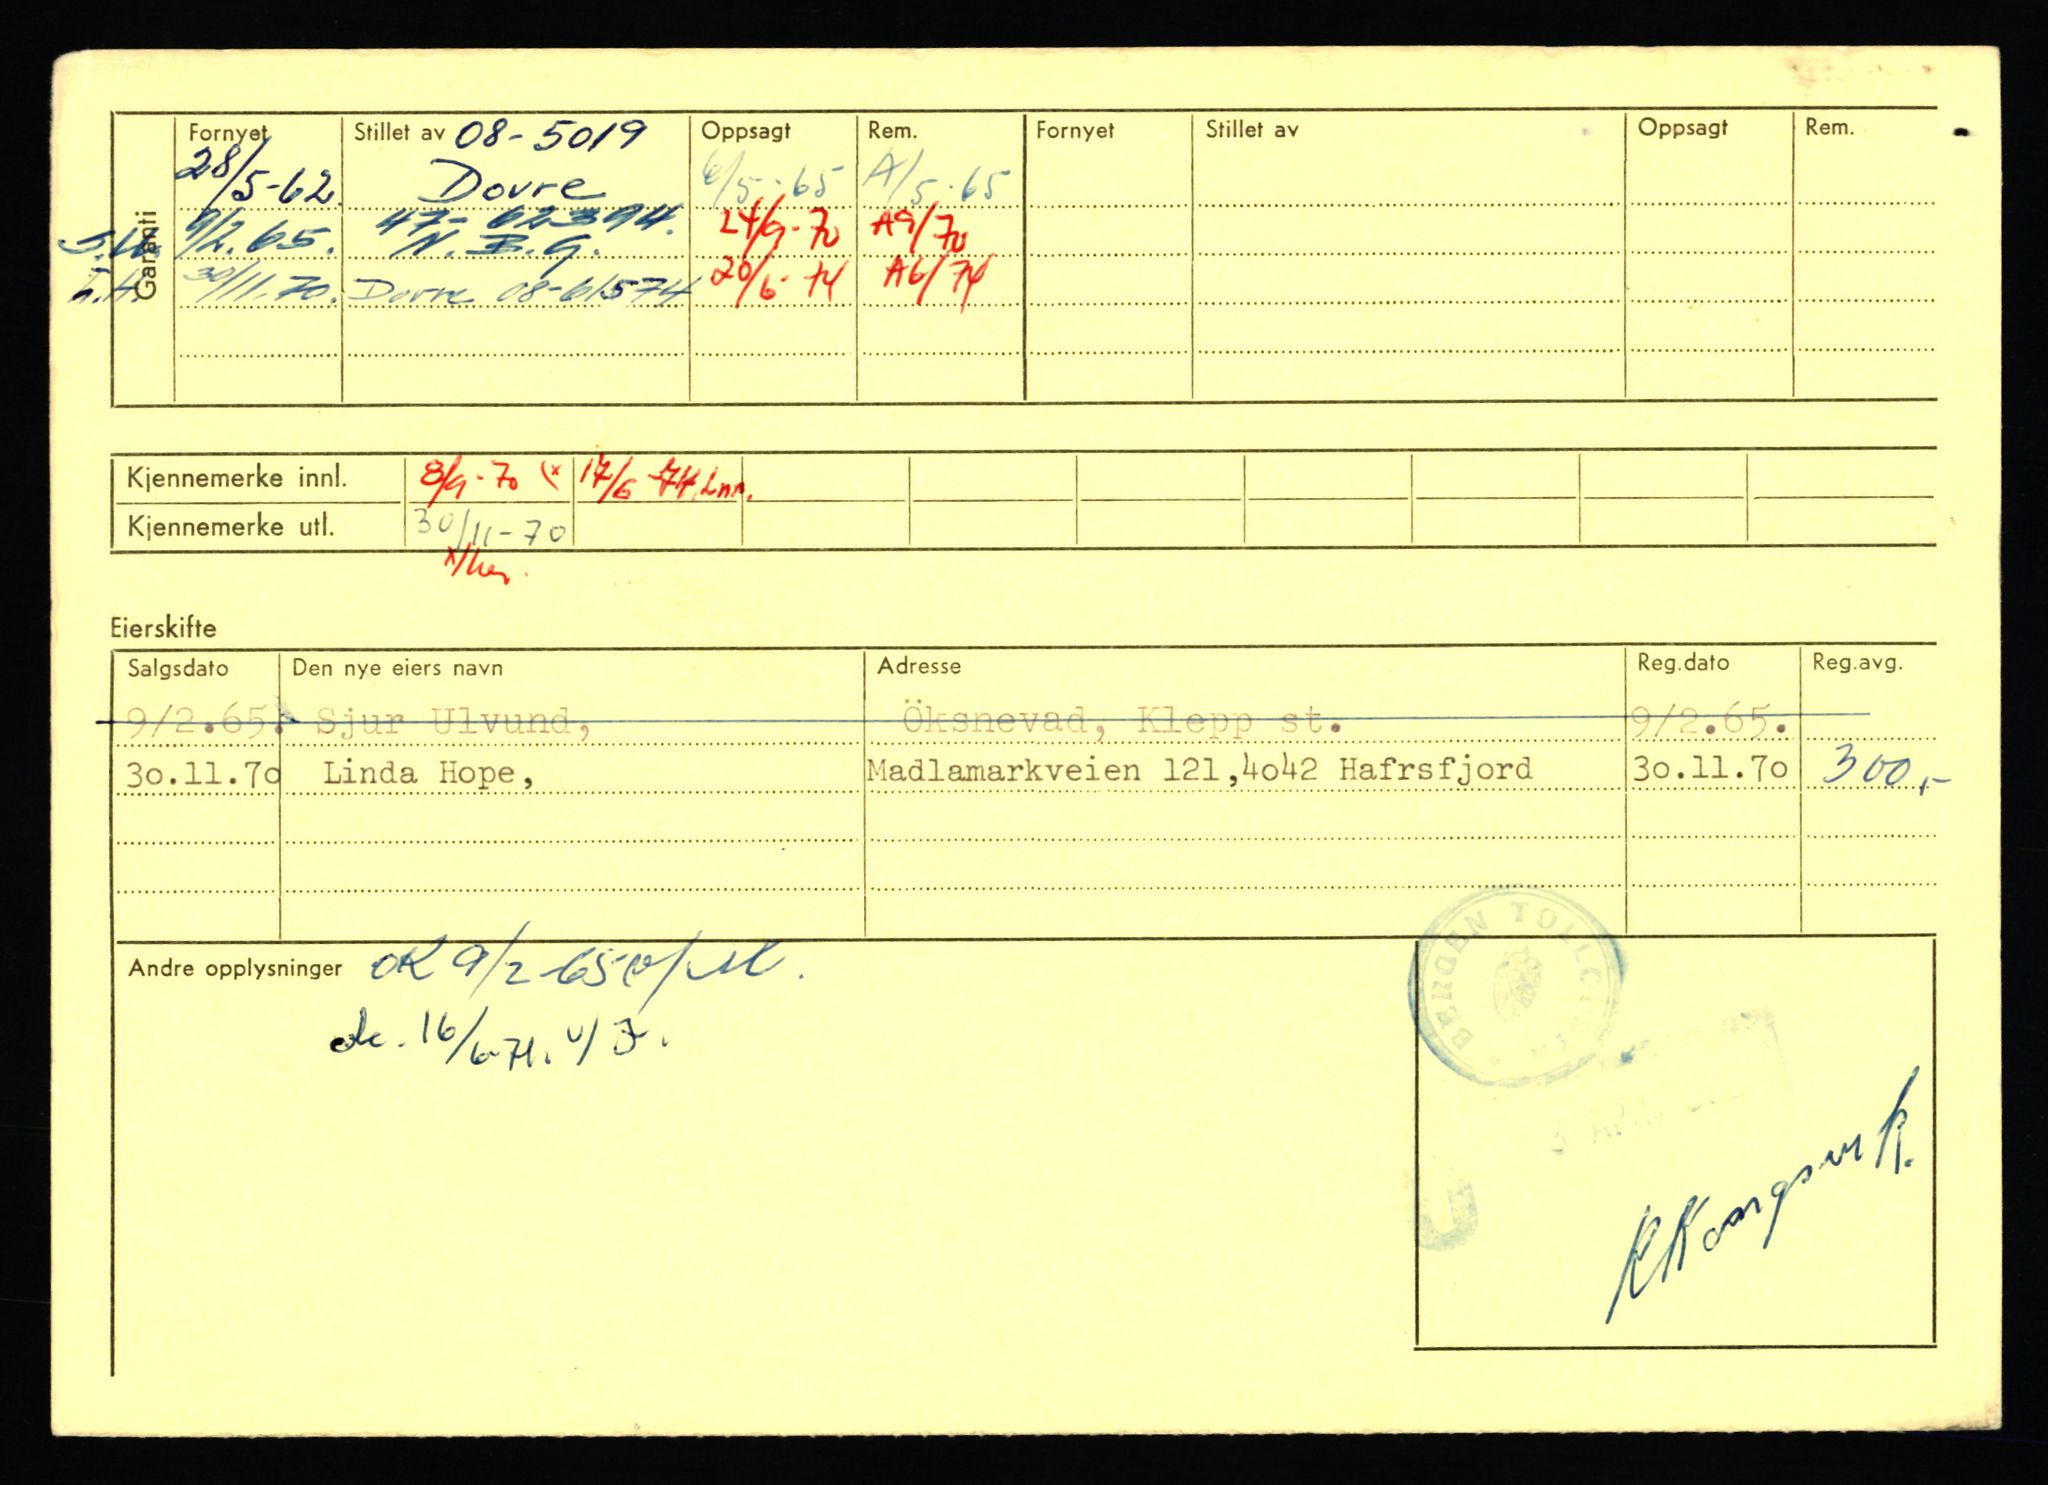 Garanti
Fornyet Stillet av 08-5019 Oppsagt Rem. Fornyet Stillet av Oppsagt Rem.
28/5-62. Dovre 6/5-65 A/5-65
9/2.65. 47-62394. N.B.G. 24/9-70 A9/70
L.H. 30/11.70. Dovre 08-61574 20/6-74 A6/74
Kjennemerke innl. 8/9-70 (x 17/6-74.
Kjennemerke utl. 30/11-70
Eierskifte
Salgsdato Den nye eiers navn Adresse Reg.dato Reg.avg.
9/2.65. Sjur Ulvund, Öksnevad, Klepp st. 9/2.65.
30.11.70 Linda Hope, Madlamarkveien 121,4042 Hafrsfjord 30.11.70 300,-
Andre opplysninger OK 9/2-65
ok. 16/6-71. v/
BERGEN